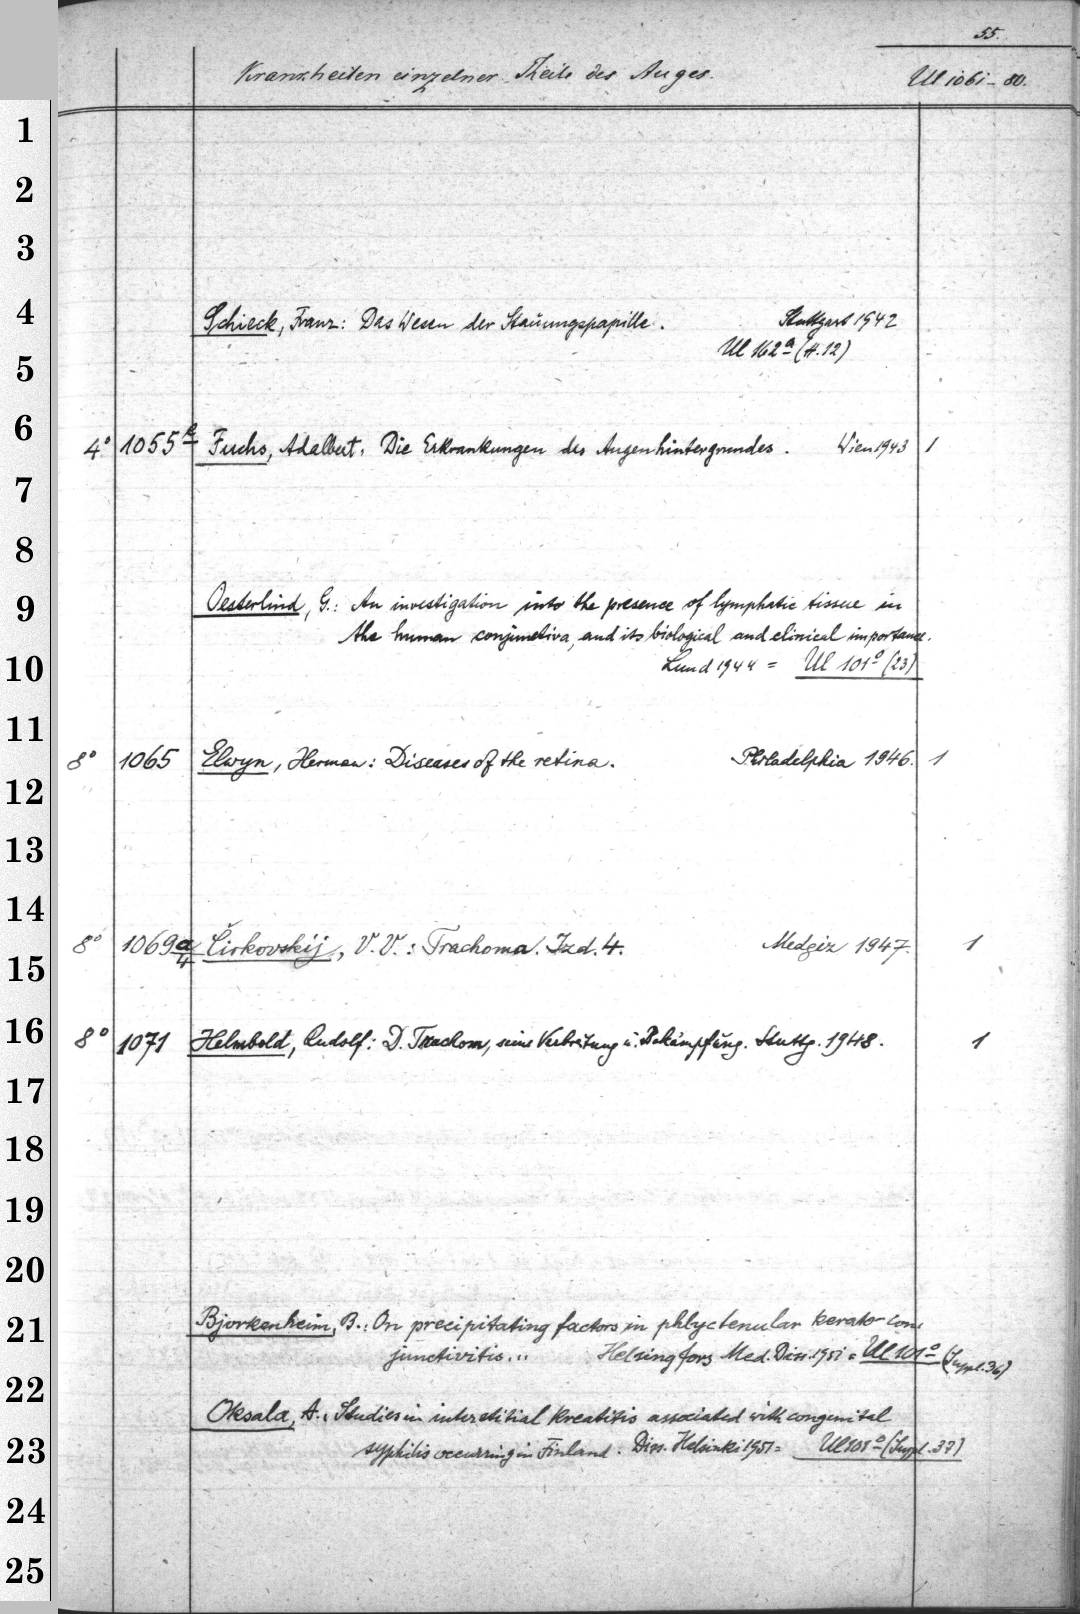 55.
Krankheiten einzelner Theile des Auges. Ul 1061-80.
1
2
3
4 Schieck, Franz: Das Wesen der Stauungspapille. Stuttgart 1942
Ul 162a (H.12)
5
6 4° 1055 Fuchs, Adalbert. Die Erkrankungen des Augenhintergrundes. Wien 1943 1
7
8
9 Oesterlind, G.: An investigation into the presence of lymphatic tissue in
the human conjunctiva, and its biological and clinical importance.
10 Lund 1944 = Ul 101° (23)
11
8° 1065 Elwyn, Herman: Diseases of the retina. Philadelphia 1946. 1
12
13
14
8° 1069 a/4 Čirkovskij, V. V.: Trachoma. Izd. 4. Medgiz 1947. 1
15
16 8° 1071 Helmbold, Rudolf: D. Trachom, seine Verbreitung u. Bekämpfung. Stuttg. 1948. 1
17
18
19
20
21 Bjorkenheim, B.: On precipitating factors in phlyctenular kerato-con
junctivitis... Helsingfors Med. Diss. 1951 = Ul 101° (Suppl. 36)
22
Oksala, A. Studies in interstitial kreatitis associated with congenital
23 syphilis occurring in Finland. Diss. Helsinki 1951 = Ul 101° (Suppl. 37)
24
25